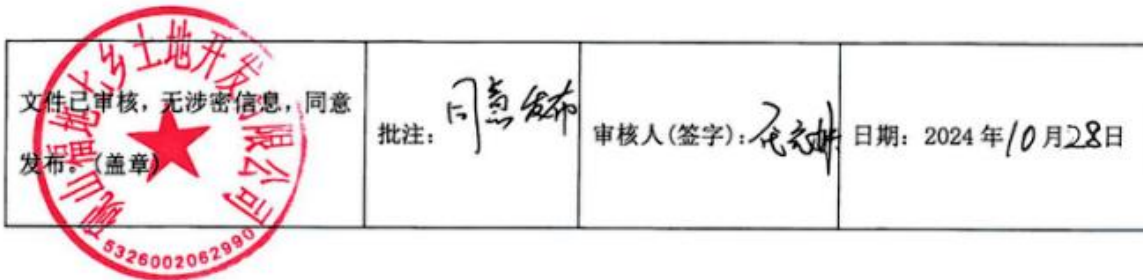 文件已审核，无涉密信息，同意
发布。(盖章)
批注：同意发布
审核人(签字)：
日期：2024年10月28日
砚山福地七乡土地开发有限公司
5326002062990